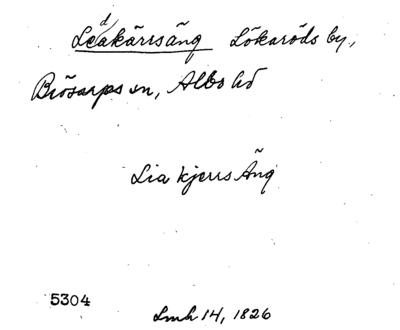 Ledakärrsäng Lökaröds by,
Brösarps sn, Albo hd
Lia kjerrs Äng
5304
Lmh 14, 1826